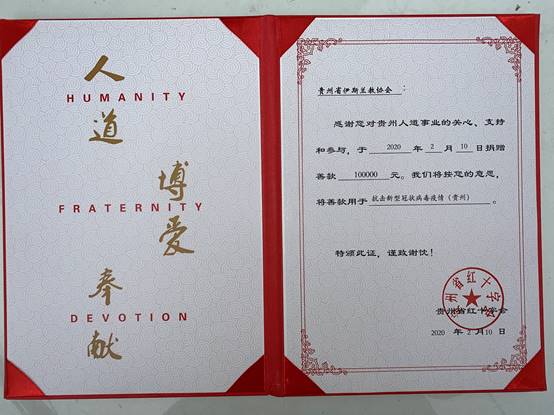 人
HUMANITY
道
博
FRATERNITY
爱
奉
DEVOTION
献
贵州省伊斯兰教协会：
感谢您对贵州人道事业的关心、支持
和参与，于 2020 年 2 月 10 日捐赠
善款 100000 元。我们将按您的意愿，
将善款用于 抗击新型冠状病毒疫情（贵州） 。
特颁此证，谨致谢忱！
贵州省红十字会
贵州省红十字会
2020 年 2 月 10 日